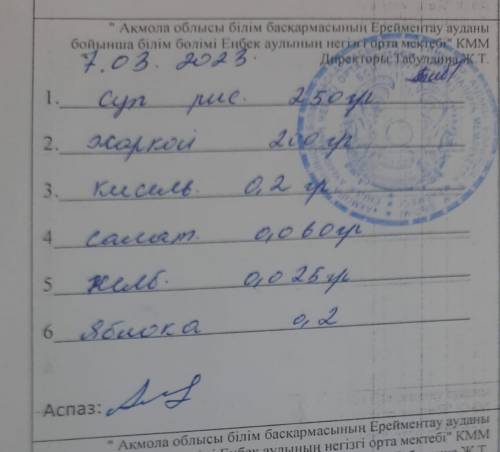 " Ақмола облысы білім басқармасының Ерейментау ауданы
бойынша білім бөлімі Еңбек аулының негізгі орта мектебі" КММ
7.03. 2023. Директоры Табулдина Ж.Т.
1. Суп рис. 250гр
2. жаркои 200гр
3. кисель. 0,2 гр
4 салат. 0,060гр
5 желб. 0,025гр
6 яблока 0,2
Аспаз:
" Ақмола облысы білім басқармасының Ерейментау ауданы
бойынша білім бөлімі Еңбек аулының негізгі орта мектебі" КММ
Ж.Т.